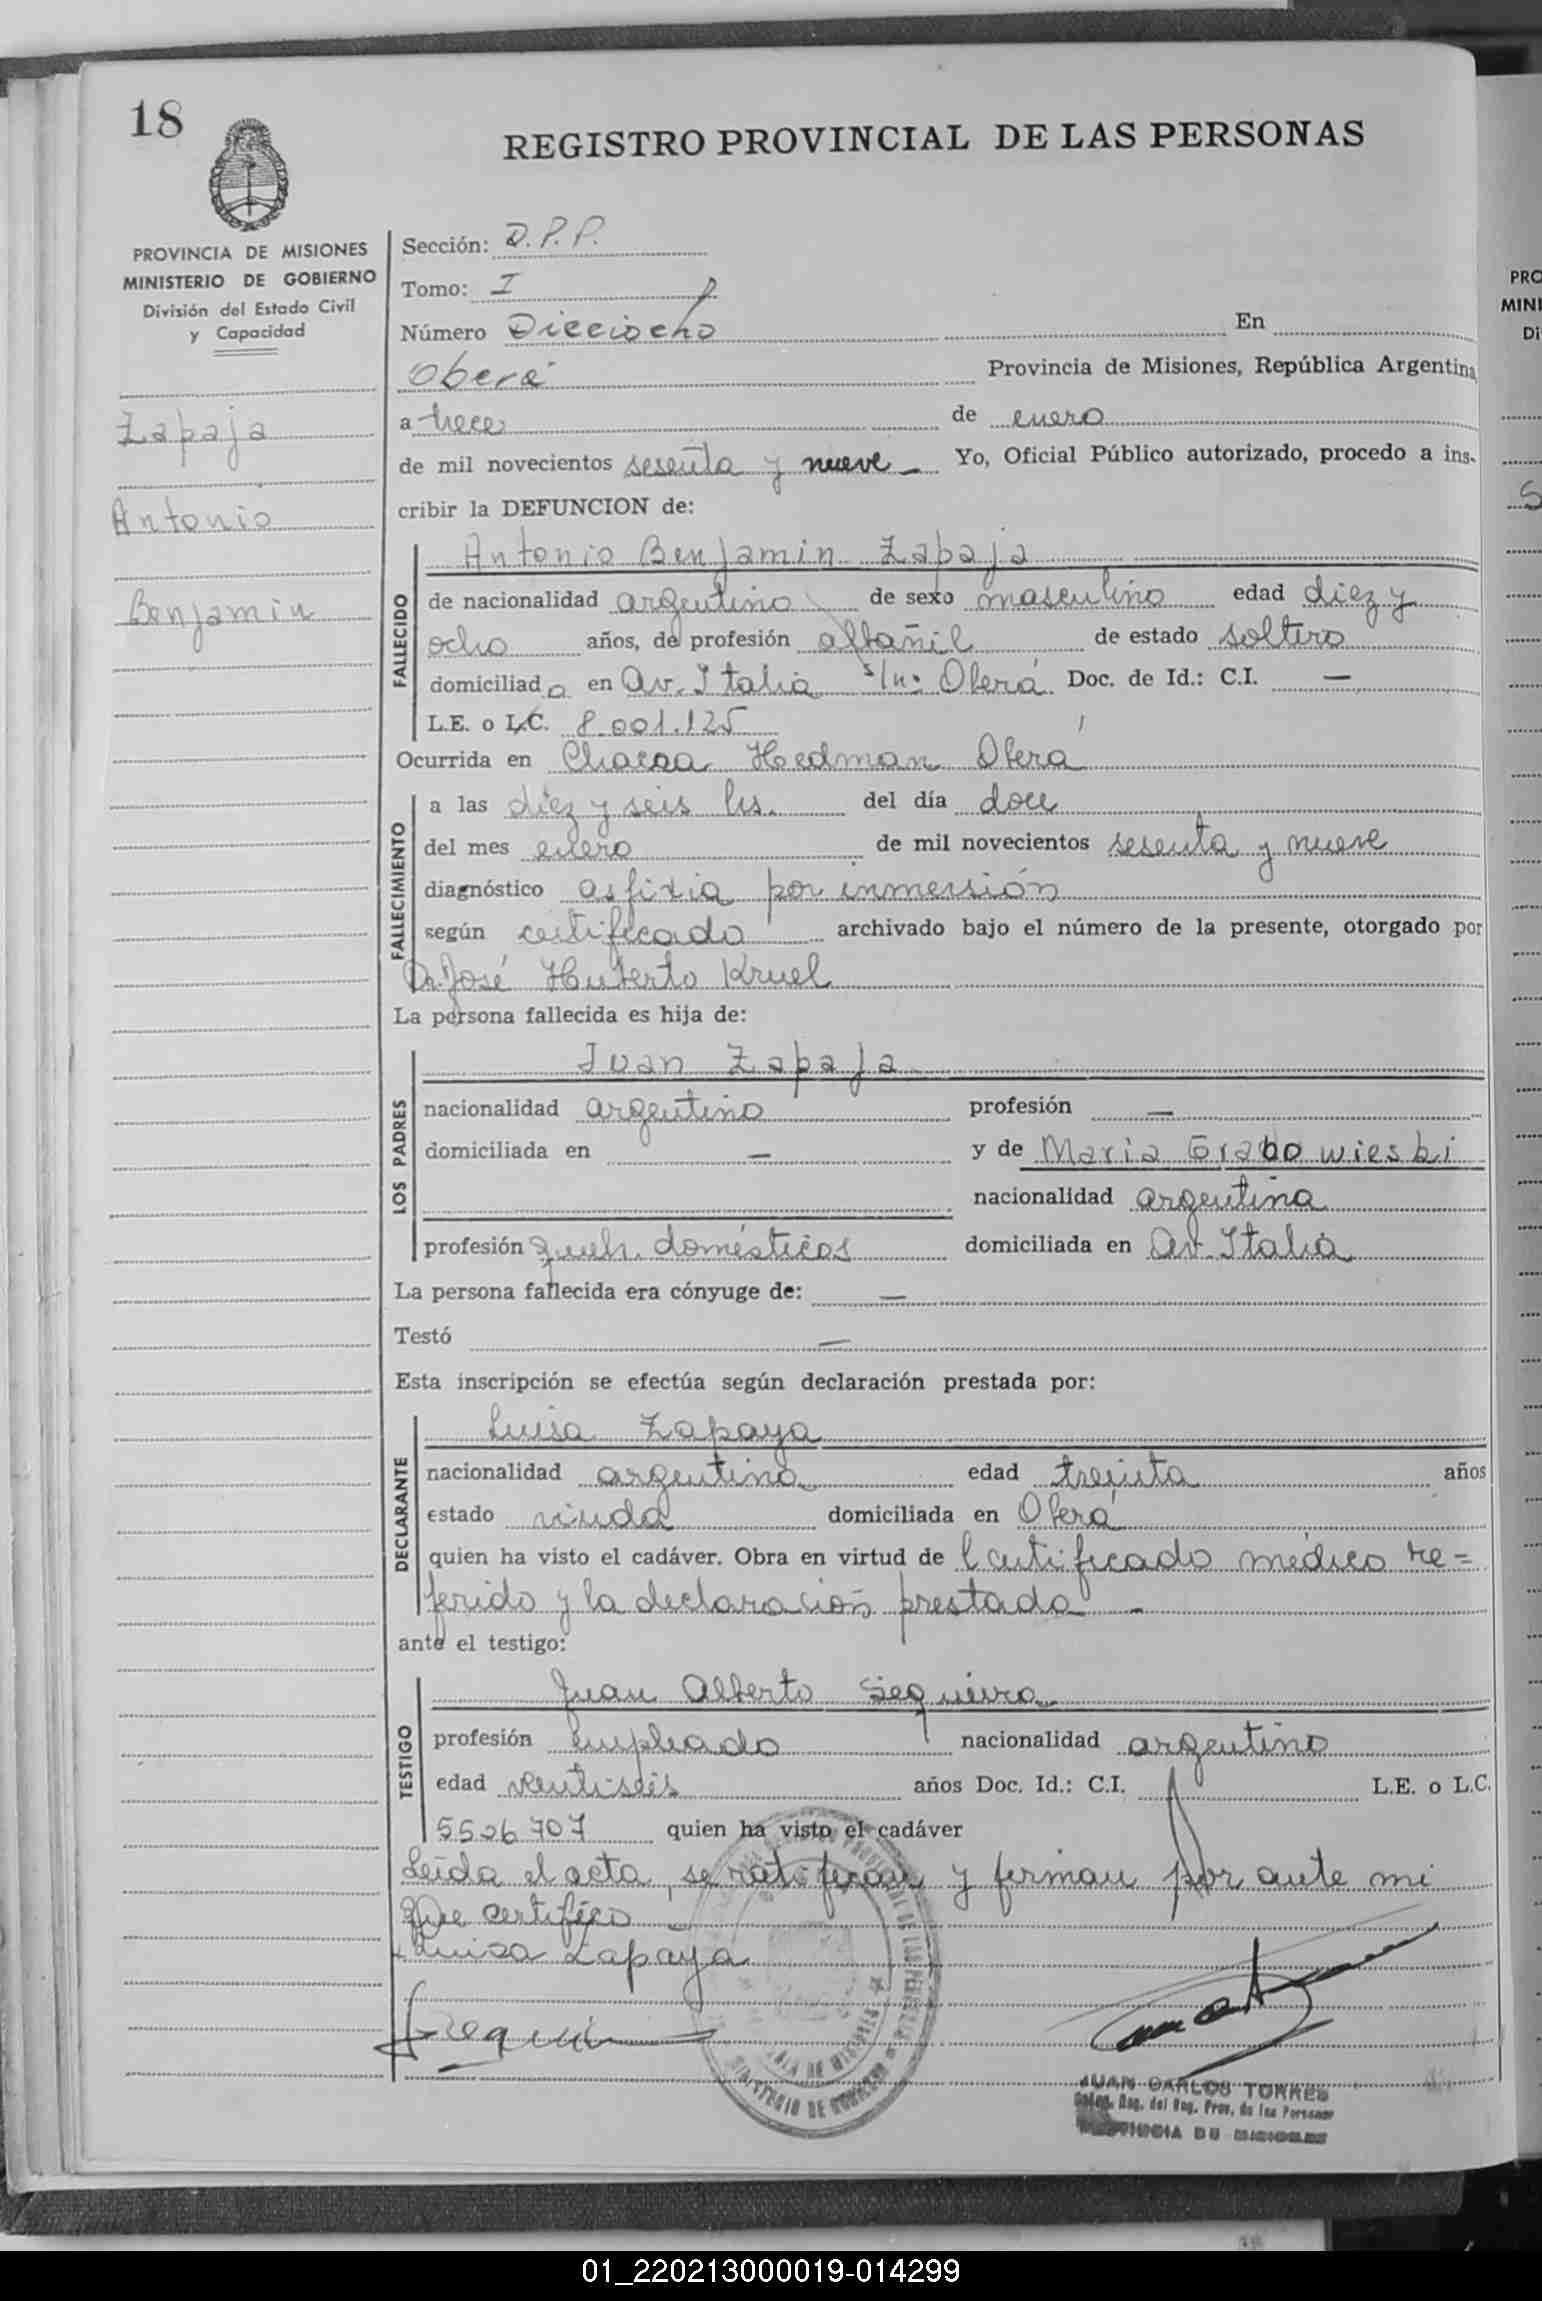 18
REGISTRO PROVINCIAL DE LAS PERSONAS
PROVINCIA DE MISIONES
MINISTERIO DE GOBIERNO
División del Estado Civil
y Capacidad
Zapaja
Antonio
Benjamin
Sección: D.P.P.
Tomo: I
Número Dieciocho En
Oberá Provincia de Misiones, República Argentina
a trece de enero
de mil novecientos sesenta y nueve Yo, Oficial Público autorizado, procedo a ins-
cribir la DEFUNCION de:
FALLECIDO
Antonio Benjamin Zapaja
de nacionalidad argentino de sexo masculino edad diez y
ocho años, de profesión albañil de estado soltero
domiciliado en Av. Italia s/n. Oberá Doc. de Id.: C.I. —
L.E. o L.C. 8.001.125
Ocurrida en Chacra Hedman Oberá
FALLECIMIENTO
a las diez y seis hs. del día doce
del mes enero de mil novecientos sesenta y nueve
diagnóstico asfixia por inmersión
según certificado archivado bajo el número de la presente, otorgado por
Dr. José Huberto Kruel
La persona fallecida es hija de:
LOS PADRES
Juan Zapaja
nacionalidad argentino profesión —
domiciliada en — y de Maria Grabowieski
nacionalidad argentina
profesión queh. domésticos domiciliada en Av. Italia
La persona fallecida era cónyuge de: —
Testó —
Esta inscripción se efectúa según declaración prestada por:
DECLARANTE
Luisa Zapaya
nacionalidad argentina edad treinta años
estado viuda domiciliada en Oberá
quien ha visto el cadáver. Obra en virtud de l certificado médico re=
ferido y la declaración prestada -
ante el testigo:
TESTIGO
Juan Alberto Sequeira
profesión empleado nacionalidad argentino
edad veintiseis años Doc. Id.: C.I. L.E. o L.C.
5526707 quien ha visto el cadáver
Leida el acta, se ratifican y firman por ante mi
Que certifico -
Luisa Zapaya
JUAN CARLOS TORRES
PROVINCIA DE MISIONES
MINISTERIO DE GOBIERNO
PRO
MINI
Di
01_220213000019-014299